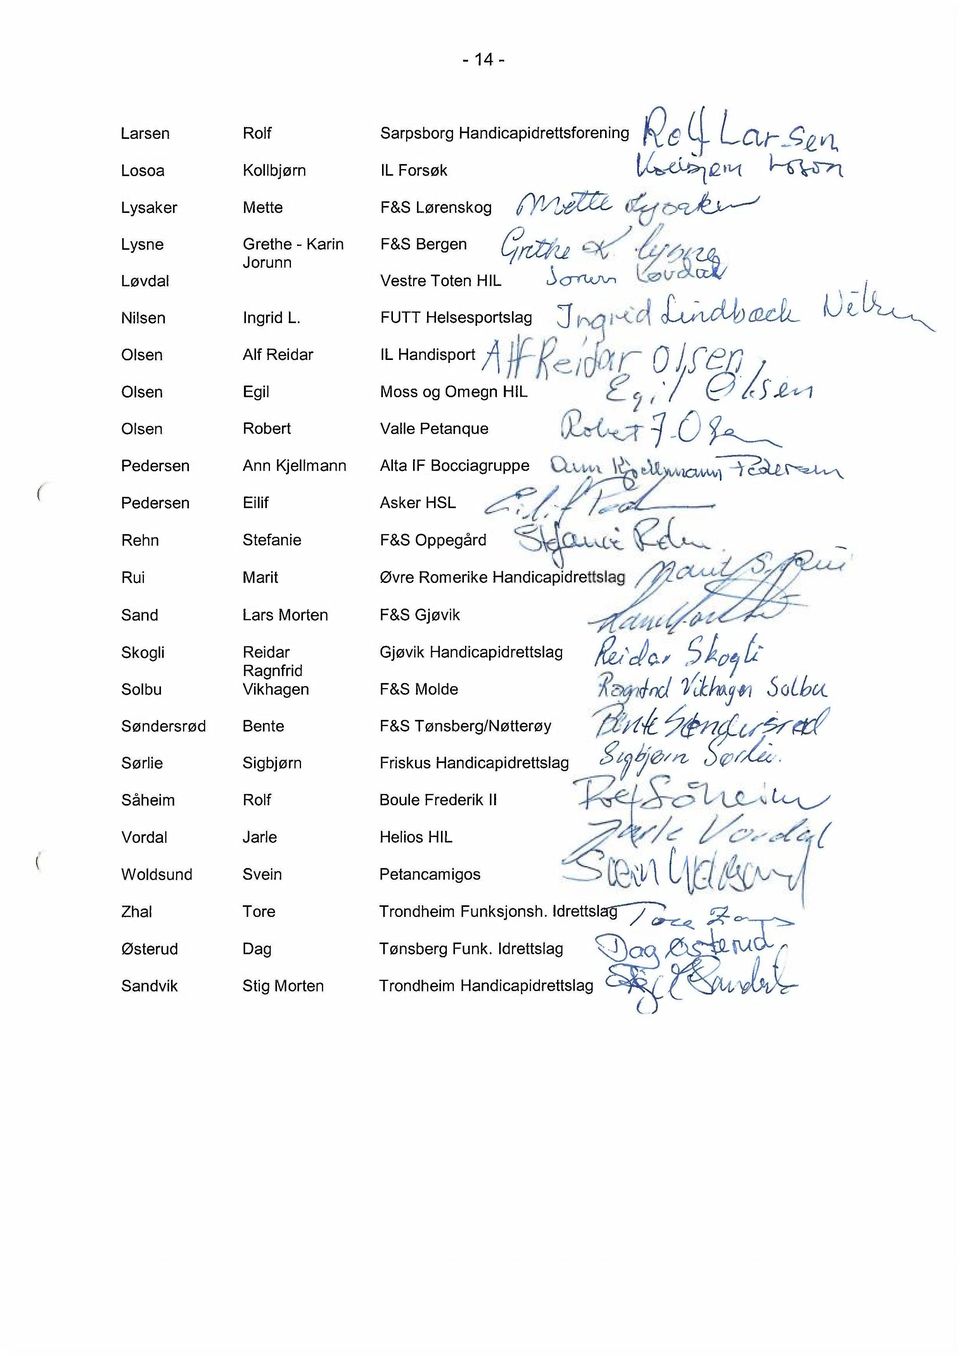 - 14 -
Larsen Rolf Sarpsborg Handicapidrettsforening Rolf Larsen
Losoa Kollbjørn IL Forsøk
Lysaker Mette F&S Lørenskog Mette Lysaker
Lysne Grethe - Karin F&S Bergen Grethe K Lysne
Jorunn
Løvdal Vestre Toten HIL Jorunn Løvdal
Nilsen Ingrid L. FUTT Helsesportslag Ingrid Lindbæck Nilsen
Olsen Alf Reidar IL Handisport Alf Reidar Olsen
Olsen Egil Moss og Omegn HIL Egil Olsen
Olsen Robert Valle Petanque Robert
Pedersen Ann Kjellmann Alta IF Bocciagruppe Ann Kjellmann Pedersen
Pedersen Eilif Asker HSL Eilif
Rehn Stefanie F&S Oppegård Stefanie Rehn
Rui Marit Øvre Romerike Handicapidrettslag Marit S. Rui
Sand Lars Morten F&S Gjøvik
Skogli Reidar Gjøvik Handicapidrettslag Reidar Skogli
Ragnfrid
Solbu Vikhagen F&S Molde Ragnfrid Vikhagen Solbu
Søndersrød Bente F&S Tønsberg/Nøtterøy Bente Søndersrød
Sørlie Sigbjørn Friskus Handicapidrettslag Sigbjørn Sørlie.
Såheim Rolf Boule Frederik II Rolf Såheim
Vordal Jarle Helios HIL Jarle Vordal
Woldsund Svein Petancamigos Svein Woldsund
Zhal Tore Trondheim Funksjonsh. Idrettslag Tore
Østerud Dag Tønsberg Funk. Idrettslag Dag Østerud
Sandvik Stig Morten Trondheim Handicapidrettslag Stig Sandvik